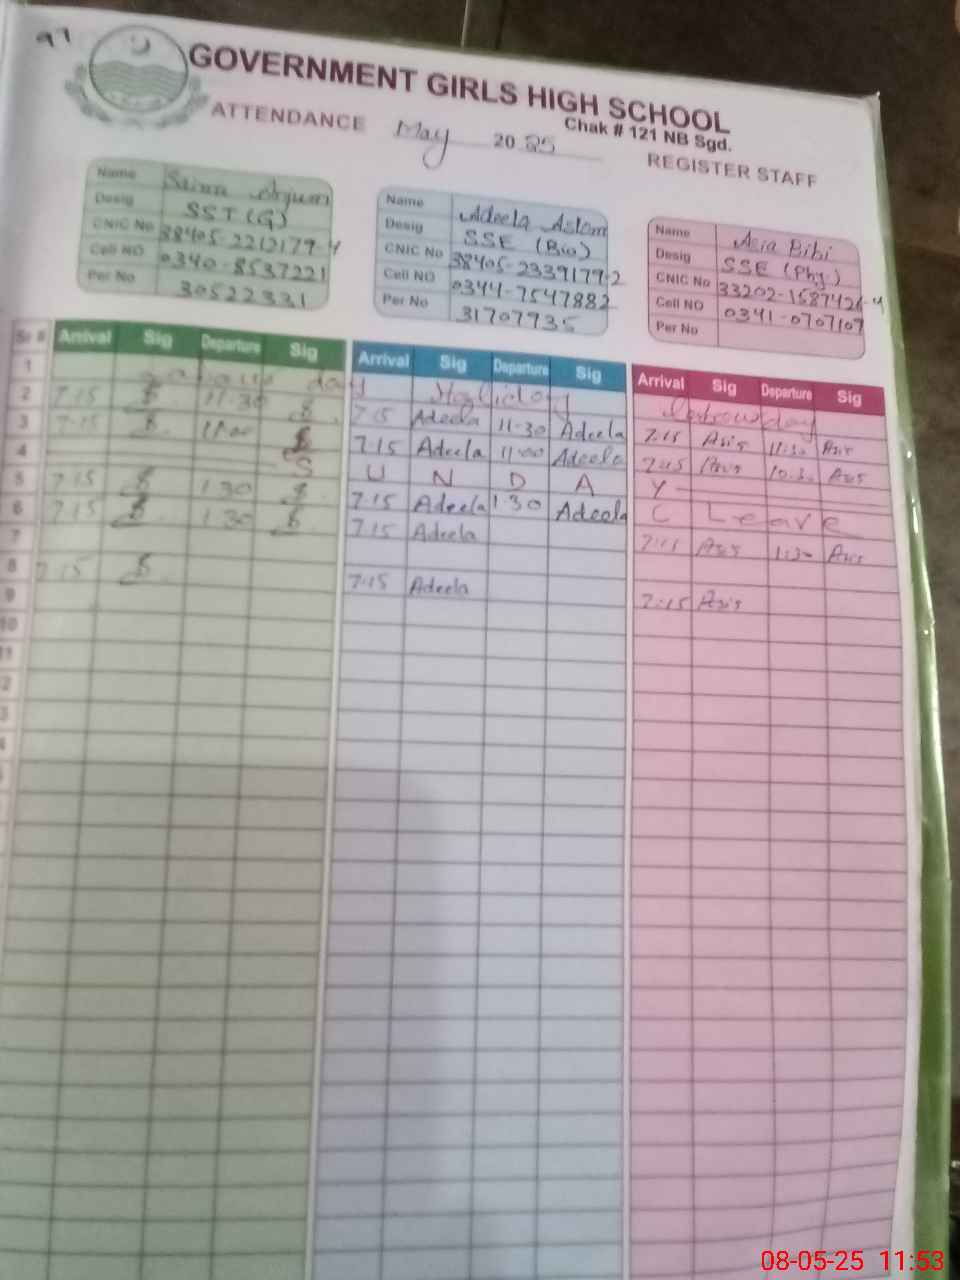 97
GOVERNMENT GIRLS HIGH SCHOOL
Chak # 121 NB Sgd.
ATTENDANCE May 2025 REGISTER STAFF
Name Saima Anjum
Desig SST (G)
CNIC No 38405-2212179-4
Cell NO 0340-8537221
Per No 30522331
Name Adeela Aslam
Desig SSE (Bio)
CNIC No 38405-2339179-2
Cell NO 0344-7547882
Per No 31707935
Name Asia Bibi
Desig SSE (Phy)
CNIC No 33202-1587426-4
Cell NO 0341-0707107
Per No
Sr # Arrival Sig Departure Sig Arrival Sig Departure Sig Arrival Sig Departure Sig
1 day Holiday
2 7:15 11:30 7:15 Adeela 11-30 Adeela 7:15 Asis 11:30 Asis
3 7:15 11:00 7:15 Adeela 11:00 Adeela 7:15 Asis 10.30 Asis
4 S U N D A Y
5 7:15 1:30 7:15 Adeela 1:30 Adeela C Leave
6 7:15 1:30 7:15 Adeela 7:15 Asis 1:30 Asis
7
8 7:15 7:15 Adeela 7:15 Asis
9
10
11
2
3
4
08-05-25 11:53